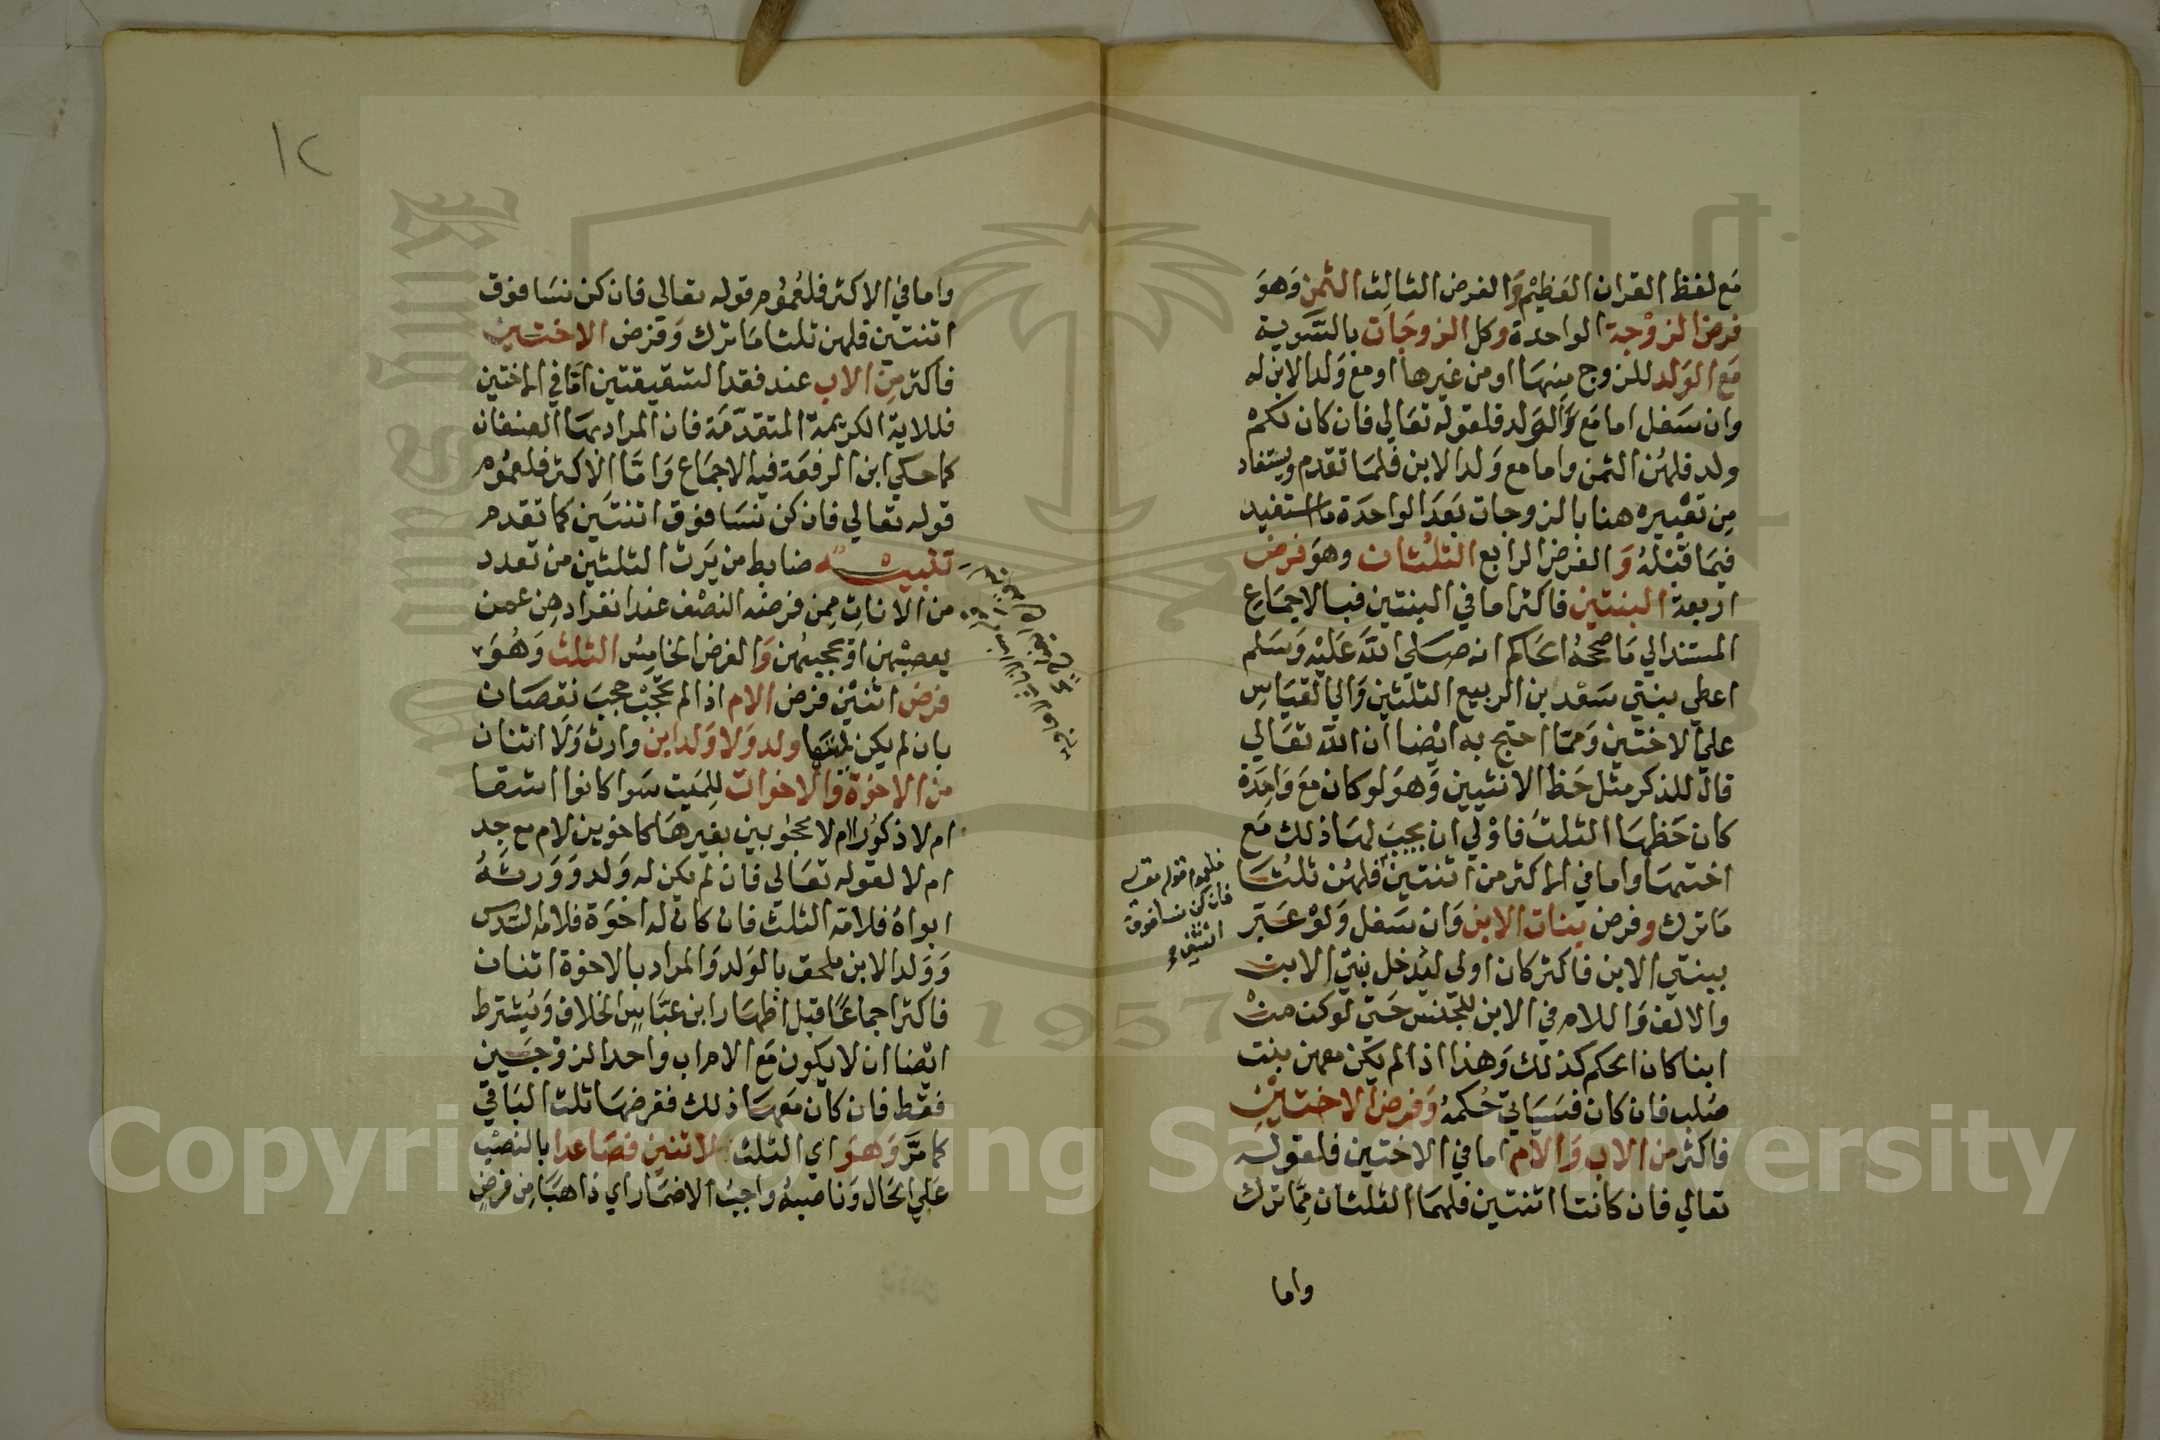 مع لفظ القران العظيم والفرض الثالث الثمن وهو
فرض الزوجة الواحدة وكل الزوجات بالتسوية
مع الولد للزوج منها او من غيرها او مع ولد الابن له
وان سفل اما مع الولد فلقوله تعالي فان كان لكم
ولد فلهن الثمن واما مع ولد الابن فلما تقدم ويستفاد
من تعبيره هنا بالزوجات بعد الواحدة ما استفيد
فيما قبله والفرض الرابع الثلثان وهو فرض
اربعة البنتين فاكثر اما في البنتين فبالاجماع
المستند الي ما صححه الحاكم انه صلي الله عليه وسلم
اعطي بنتي سعد بن الربيع الثلثين والي القياس
علي الاختين ومما احتج به ايضا ان الله تعالي
قال للذكر مثل حظ الانثيين وهو لو كان مع واحدة
كان حظها الثلث فاولي ان يجب لها ذلك مع
اختها واما في الاكثر من اثنتين فلهن ثلثا
ما ترك وفرض بنات الابن وان سفل ولو عبر
ببنتي الابن فاكثر كان اولي ليدخل بنتي الابن
والالف واللام في الابن للجنس حتي لو كن من
ابنا كان الحكم كذلك وهذا اذا لم يكن معهن بنت
صلب فان كان فسياتي حكمه وفرض الاختين
فاكثر من الاب والام اما في الاختين فلقوله
تعالي فان كانتا اثنتين فلهما الثلثان مما ترك
واما
فلعموم قوله تعالي
فان كن نسا فوق
اثنتين
١٢
واما في الاكثر فلعموم قوله تعالي فان كن نسا فوق
اثنتين فلهن ثلثا ما ترك وفرض الاختين
فاكثر من الاب عند فقد الشقيقتين اما في الاختين
فللاية الكريمة المتقدمة فان المراد بها الصنفان
كما حكي ابن الرفعة فيه الاجماع واما الاكثر فلعموم
قوله تعالي فان كن نسا فوق اثنتين كما تقدم
تنبيه ضابط من يرث الثلثين من تعدد
من الاناث ممن فرضه النصف عند انفرادهن عمن
يعصبهن او يحجبهن والفرض الخامس الثلث وهو
فرض اثنين فرض الام اذا لم تحجب حجب نقصان
بان لم يكن لميتها ولد ولا ولد ابن وارث ولا اثنان
من الاخوة والاخوات للميت سوا كانوا اشقا
ام لا ذكورا ام لا محجوبين بغيرها كاخوين لام مع جد
ام لا لقوله تعالي فان لم يكن له ولد وورثه
ابواه فلامه الثلث فان كان له اخوة فلامه السدس
وولد الابن ملحق بالولد والمراد بالاخوة اثنان
فاكثر اجماعا قبل اظهار ابن عباس الخلاف ويشترط
ايضا ان لا يكون مع الام اب واحد الزوجين
فقط فان كان معها ذلك ففرضها ثلث الباقي
كما مر وهو اي الثلث لاثنين فصاعدا بالنصب
علي الحال وناصبه واجب الاضمار اي ذاهبا من فرض
Copyright © King Saud University
1957